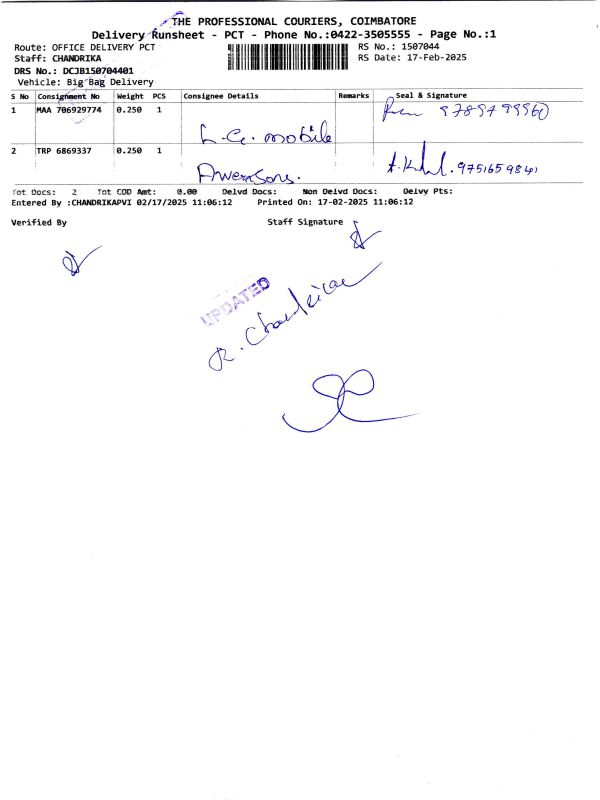 THE PROFESSIONAL COURIERS, COIMBATORE
Delivery Runsheet - PCT - Phone No.:0422-3505555 - Page No.:1
Route: OFFICE DELIVERY PCT
RS No.: 1507044
Staff: CHANDRIKA
RS Date: 17-Feb-2025
DRS No.: DCJB150704401
Vehicle: Big Bag Delivery
S No Consignment No Weight PCS Consignee Details Remarks Seal & Signature
1 MAA 706929774 0.250 1 L.G. mobile 9789799960
2 TRP 6869337 0.250 1 9751659841
Tot Docs: 2 Tot COD Amt: 0.00 Delvd Docs: Non Delvd Docs: Delvy Pts:
Entered By :CHANDRIKAPVI 02/17/2025 11:06:12 Printed On: 17-02-2025 11:06:12
Verified By Staff Signature
UPDATED
R. Chandrika